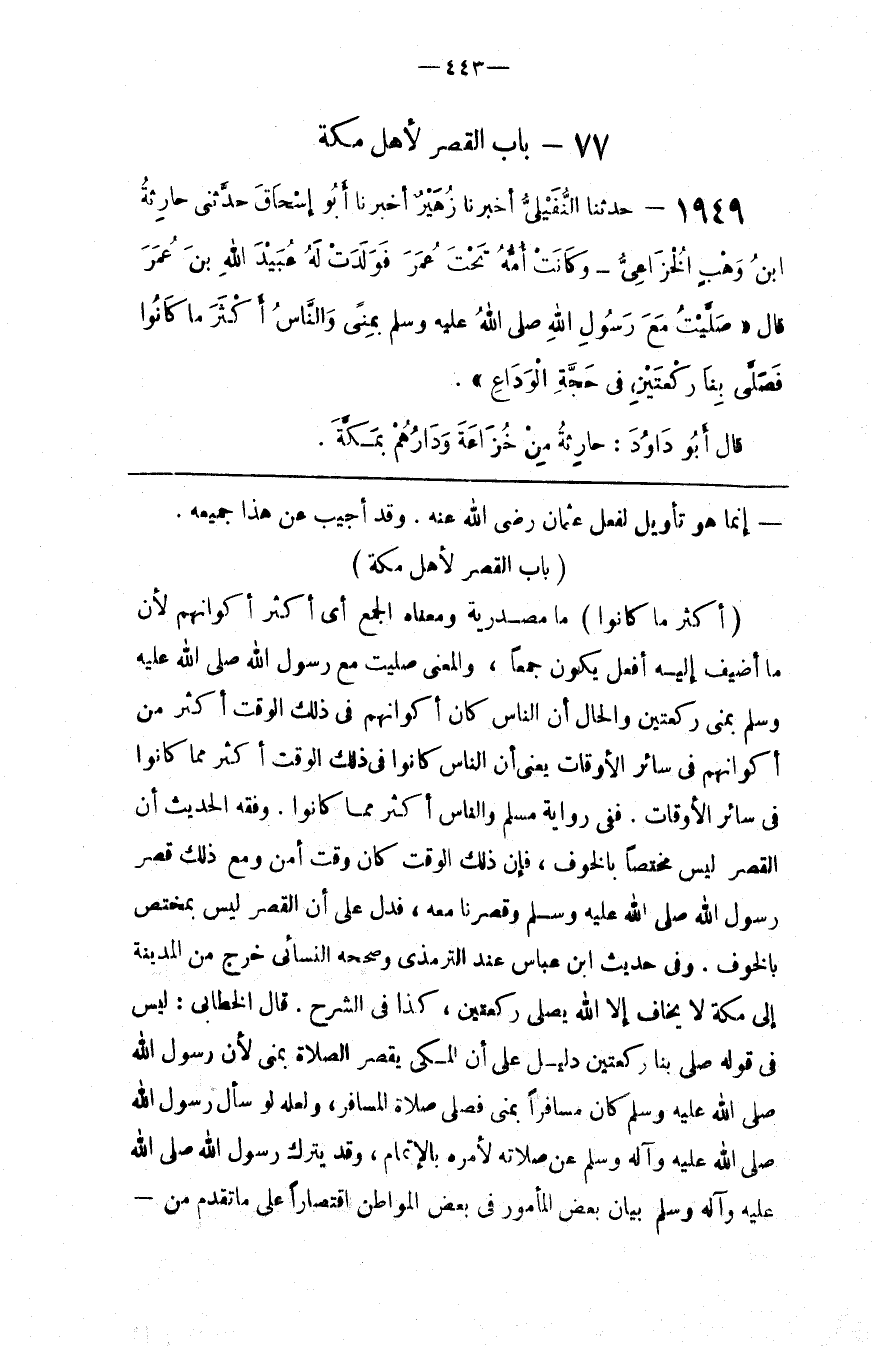 —٤٤٣—
٧٧ – باب القصر لأهل مكة
١٩٤٩ – حدثنا النُّفَيْلِيُّ أخبرنا زُهَيْرٌ أخبرنا أَبُو إسْحَاقَ حدَّثنى حارثةُ
ابنُ وَهْبٍ الْخُزَاعِيُّ – وَكَانَتْ أُمُّهُ تَحْتَ عُمَرَ فَوَلَدَتْ لَهُ عُبَيْدَ اللهِ بنَ عُمَرَ
قال « صَلَّيْتُ مَعَ رَسُولِ اللهِ صلى اللهُ عليه وسلم بِمِنًى وَالنَّاسُ أَكْثَرَ ما كَانُوا
فَصَلَّى بِنَا رَكْعَتَيْنِ فى حَجَّةِ الْوَدَاعِ » .
قال أَبُو دَاوُدَ : حارثةُ مِنْ خُزَاعَةَ وَدَارُهُمْ بِمَكَّةَ .
— إنما هو تأويل لفعل عثمان رضى الله عنه . وقد أجيب عن هذا جميعه .
( باب القصر لأهل مكة )
( أكثر ما كانوا ) ما مصدرية ومعناه الجمع أى أكثر أكوانهم لأن
ما أضيف إليه أفعل يكون جمعاً ، والمعنى صليت مع رسول الله صلى الله عليه
وسلم بمنى ركعتين والحال أن الناس كان أكوانهم فى ذلك الوقت أكثر من
أكوانهم فى سائر الأوقات يعنى أن الناس كانوا فى ذلك الوقت أكثر مما كانوا
فى سائر الأوقات . ففى رواية مسلم والناس أكثر مما كانوا . وفقه الحديث أن
القصر ليس مختصاً بالخوف ، فإن ذلك الوقت كان وقت أمن ومع ذلك قصر
رسول الله صلى الله عليه وسلم وقصرنا معه ، فدل على أن القصر ليس بمختص
بالخوف . وفى حديث ابن عباس عند الترمذى وصححه النسائى خرج من المدينة
إلى مكة لا يخاف إلا الله يصلى ركعتين ، كذا فى الشرح . قال الخطابى : ليس
فى قوله صلى بنا ركعتين دليل على أن المكى يقصر الصلاة بمنى لأن رسول الله
صلى الله عليه وسلم كان مسافراً بمنى فصلى صلاة المسافر ، ولعله لو سأل رسول الله
صلى الله عليه وآله وسلم عن صلاته لأمره بالإتمام ، وقد يترك رسول الله صلى الله
عليه وآله وسلم بيان بعض المأمور فى بعض المواطن اقتصاراً على ماتقدم من —